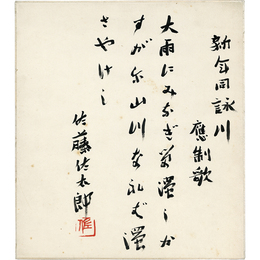 新年同詠川
應制歌
大雨にみなぎる濁しか
すがに山川なれば濁
さやけし
佐藤佐太郎